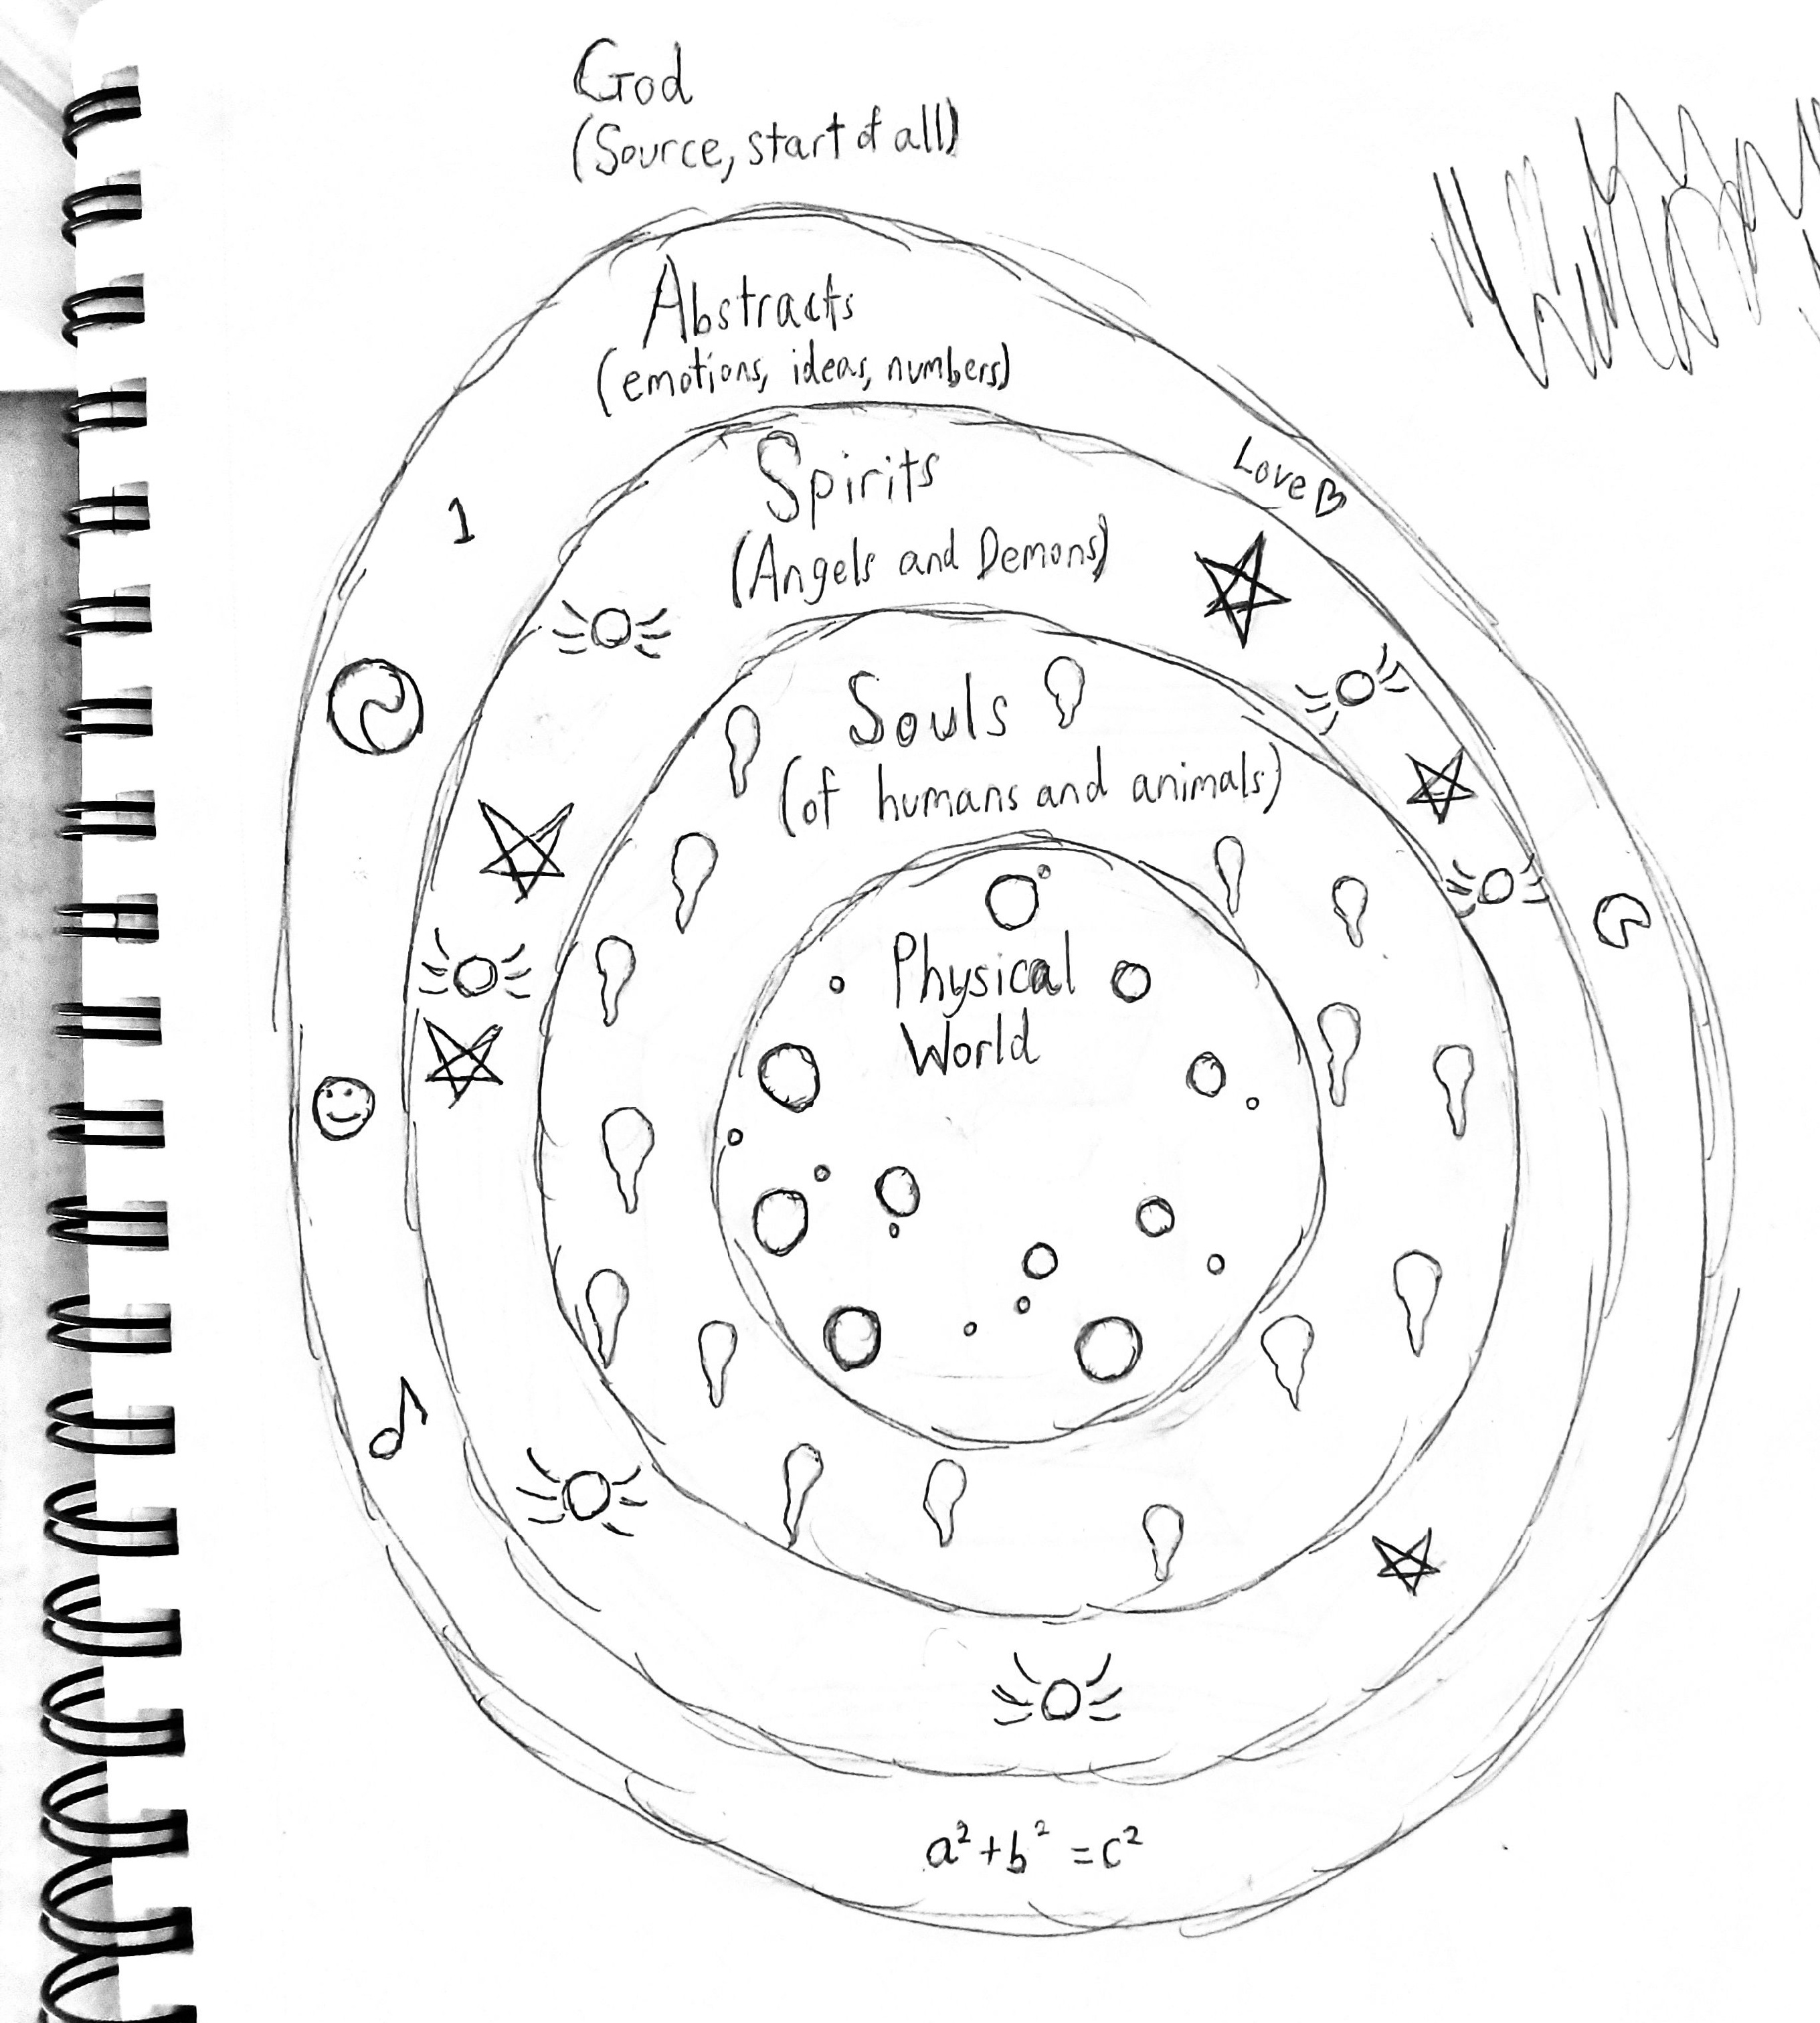 God
(Source, start of all)
Abstracts
(emotions, ideas, numbers)
Love
1
Spirits
(Angels and Demons)
Souls
(of humans and animals)
Physical
World
a²+b²=c²